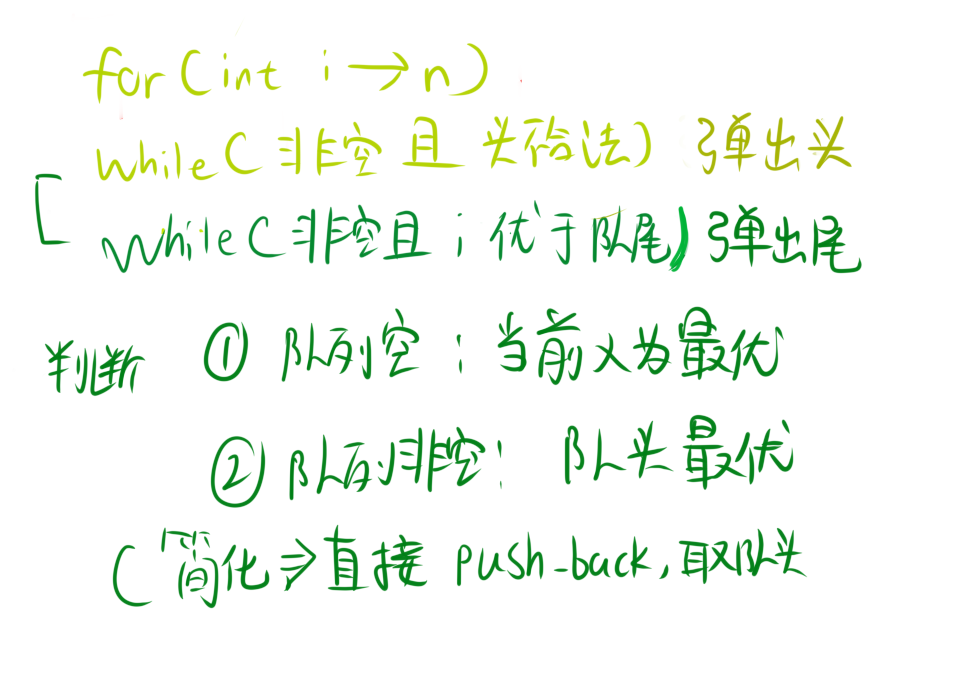 for(int i→n)
while(非空且头不合法)弹出头
while(非空且i优于队尾)弹出尾
判断 ①队列空:当前义为最优
②队列非空:队头最优
(简化⇒直接push_back,取队头